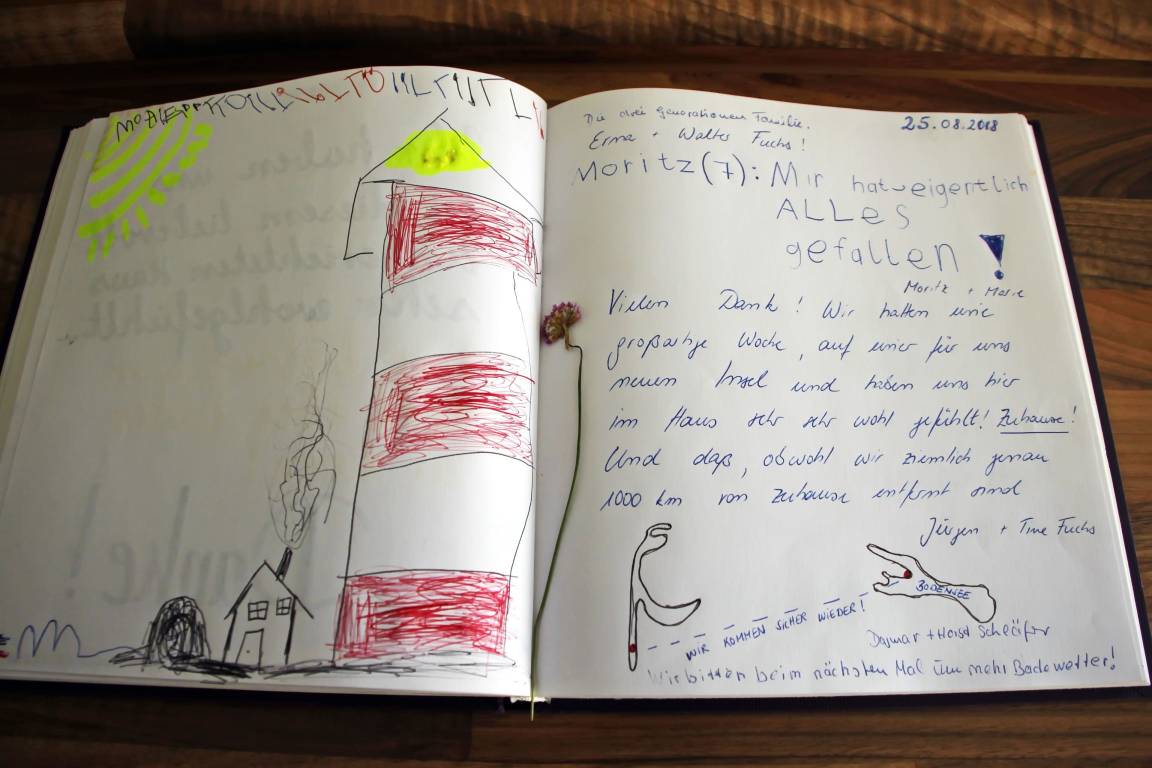 Die drei Generationen Familie.
25.08.2018
Erma + Walter Fuchs!
Moritz (7): Mir hat eigentlich
ALLES
gefallen !
Moritz + Marie
Vielen Dank! Wir hatten eine
großartige Woche, auf einer für uns
neuen Insel und haben uns hier
im Haus sehr sehr wohl gefühlt! Zuhause!
Und daß, obwohl wir ziemlich genau
1000 km von Zuhause entfernt sind
Jürgen + Tine Fuchs
BODENSEE
WIR KOMMEN SICHER WIEDER!
Dagmar + Horst Schläfer
Wir bitten beim nächsten Mal um mehr Badewetter!